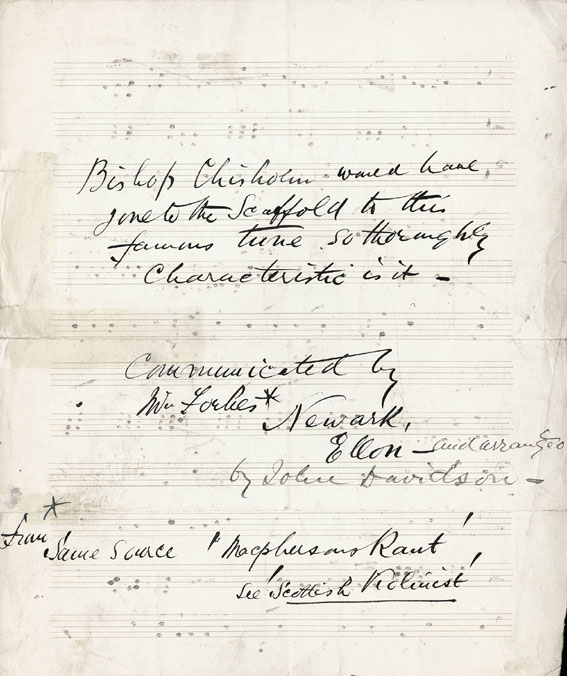 Bishop Chisholm would have
gone to the Scaffold to this
famous tune so thoroughly
Characteristic is it –
Communicated by
Wm Forbes*
Newark,
Ellon – and arranged
by John Davidson –
*
from Same Source "Macphersons Rant"
see 'Scottish Violinist'